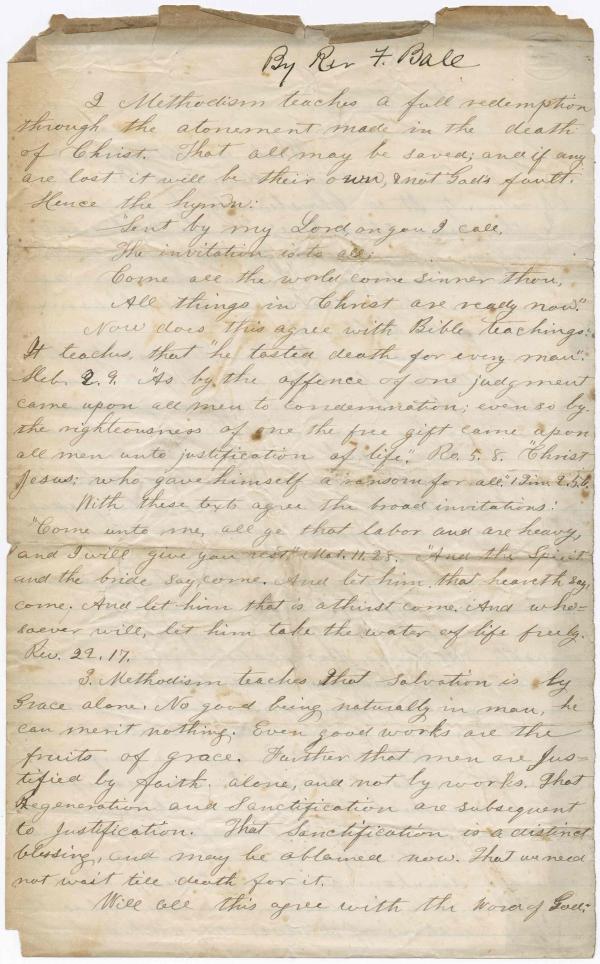 By Rev F. Bale
2 Methodism teaches a full redemption
through the atonement made in the death
of Christ. That all may be saved; and if any
are lost it will be their own, & not Gods fault.
Hence the hymn:
"Sent by my Lord on you I call,
The invitation is to all;
Come all the world come sinner thou,
All things in Christ are ready now."
Now does this agree with Bible teachings:
It teaches, that "he tasted death for every man".
Heb. 2. 9. "As by the offence of one judgment
came upon all men to condemnation; even so by
the righteousness of one the free gift came upon
all men unto justification of life." Ro. 5. 8. "Christ
Jesus; who gave himself a ransom for all." 1 Tim 2. 5.6.
With these texts agree the broad invitations:
"Come unto me, all ye that labor and are heavy,
and I will give you rest" Mat. 11. 28. "And the Spirit
and the bride say, come. And let him that heareth say,
come. And let him that is athirst come. And who-
soever will, let him take the water of life freely.
Rev. 22. 17.
3. Methodism teaches that salvation is by
Grace alone. No good being naturally in man, he
can merit nothing. Even good works are the
fruits of grace. Further that men are Jus-
tified by faith alone, and not by works. That
Regeneration and Sanctification are subsequent
to Justification. That Sanctification is a distinct
blessing, and may be obtained now. That we need
not wait till death for it.
Will all this agree with the Word of God: